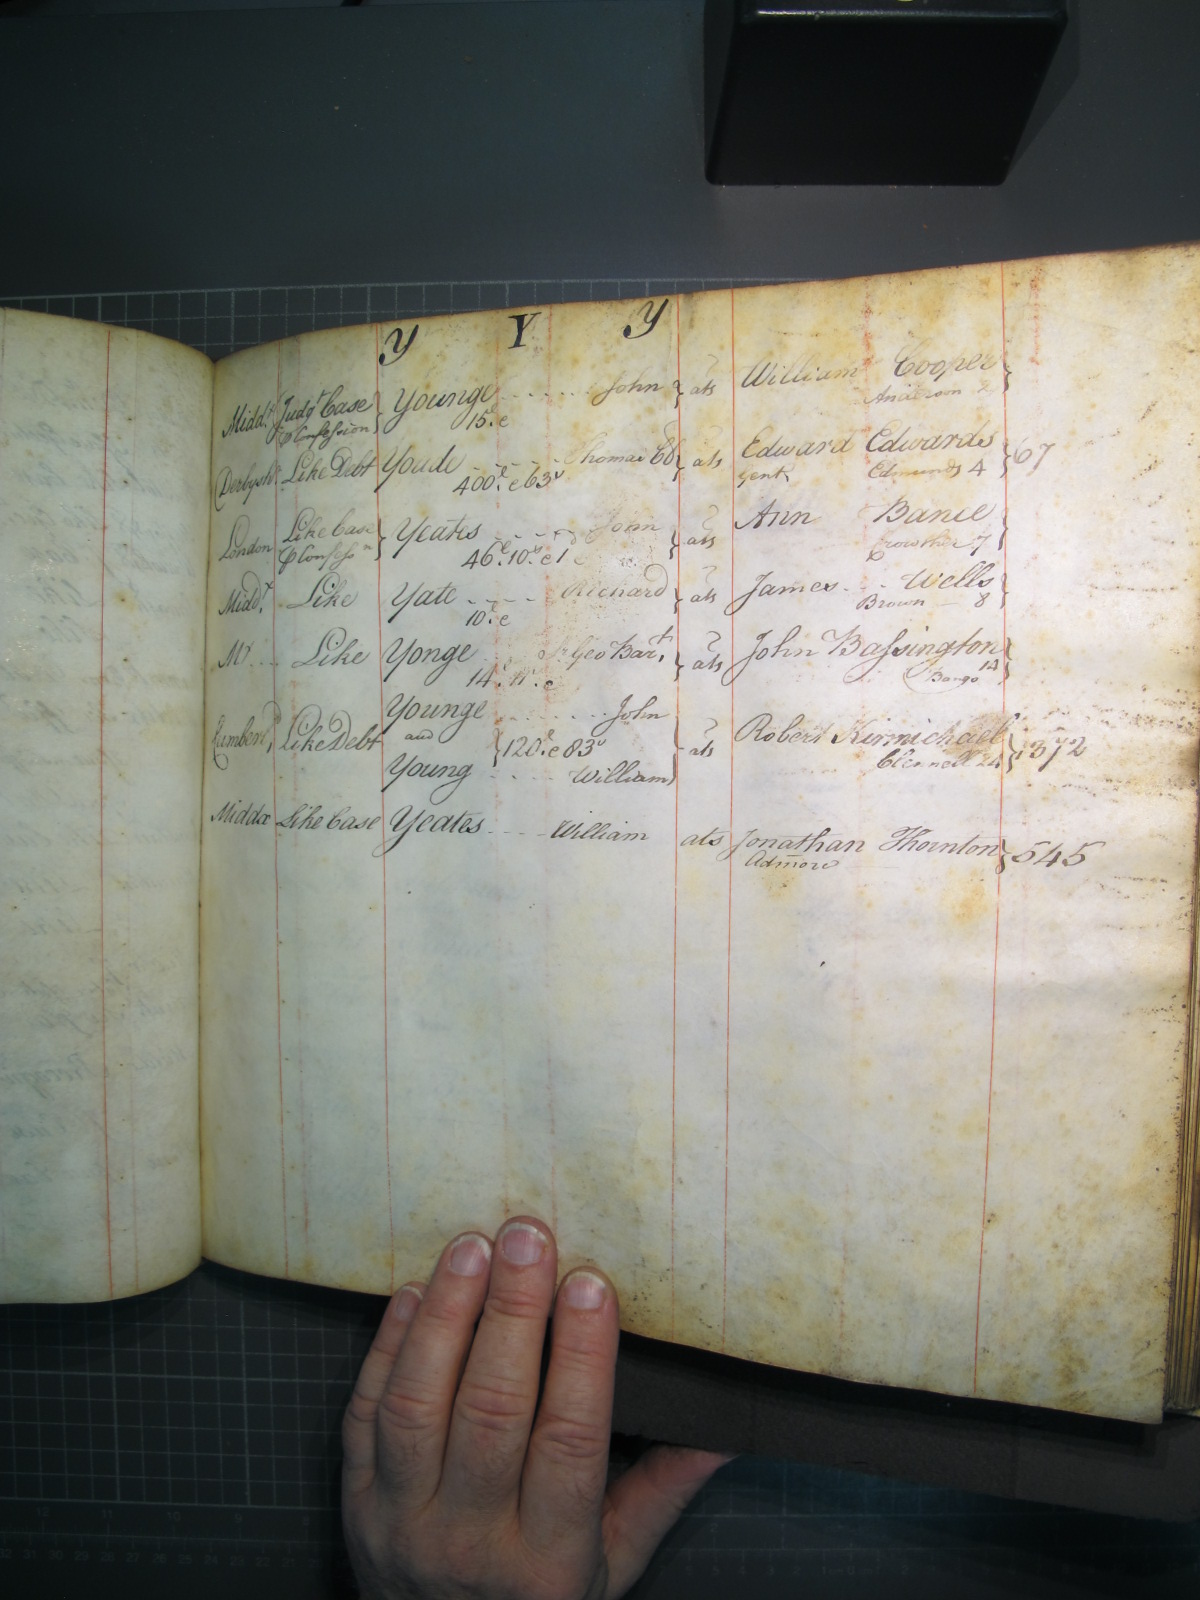 Y Y Y
Middx Judgt Case Younge John ats William Cooper
Confession 15 Anderson 2
Derbysh Like Debt Youde Thomas ats Edward Edwards 67
400 63 Gent Edmunds 4
London Like Case Yeates John ats Ann
46 10 1 Crowther 7
Middx Like Yate Richard ats James Wells
10 Brown 8
Like Yonge Geo Bart ats John Bassington
14 11 14
Younge John
and
Like Debt 120 83 ats Robert Kirmichael 372
Young William Clennell 24
Middx Like Case Yeates William ats Jonathan Thornton 545
Admore